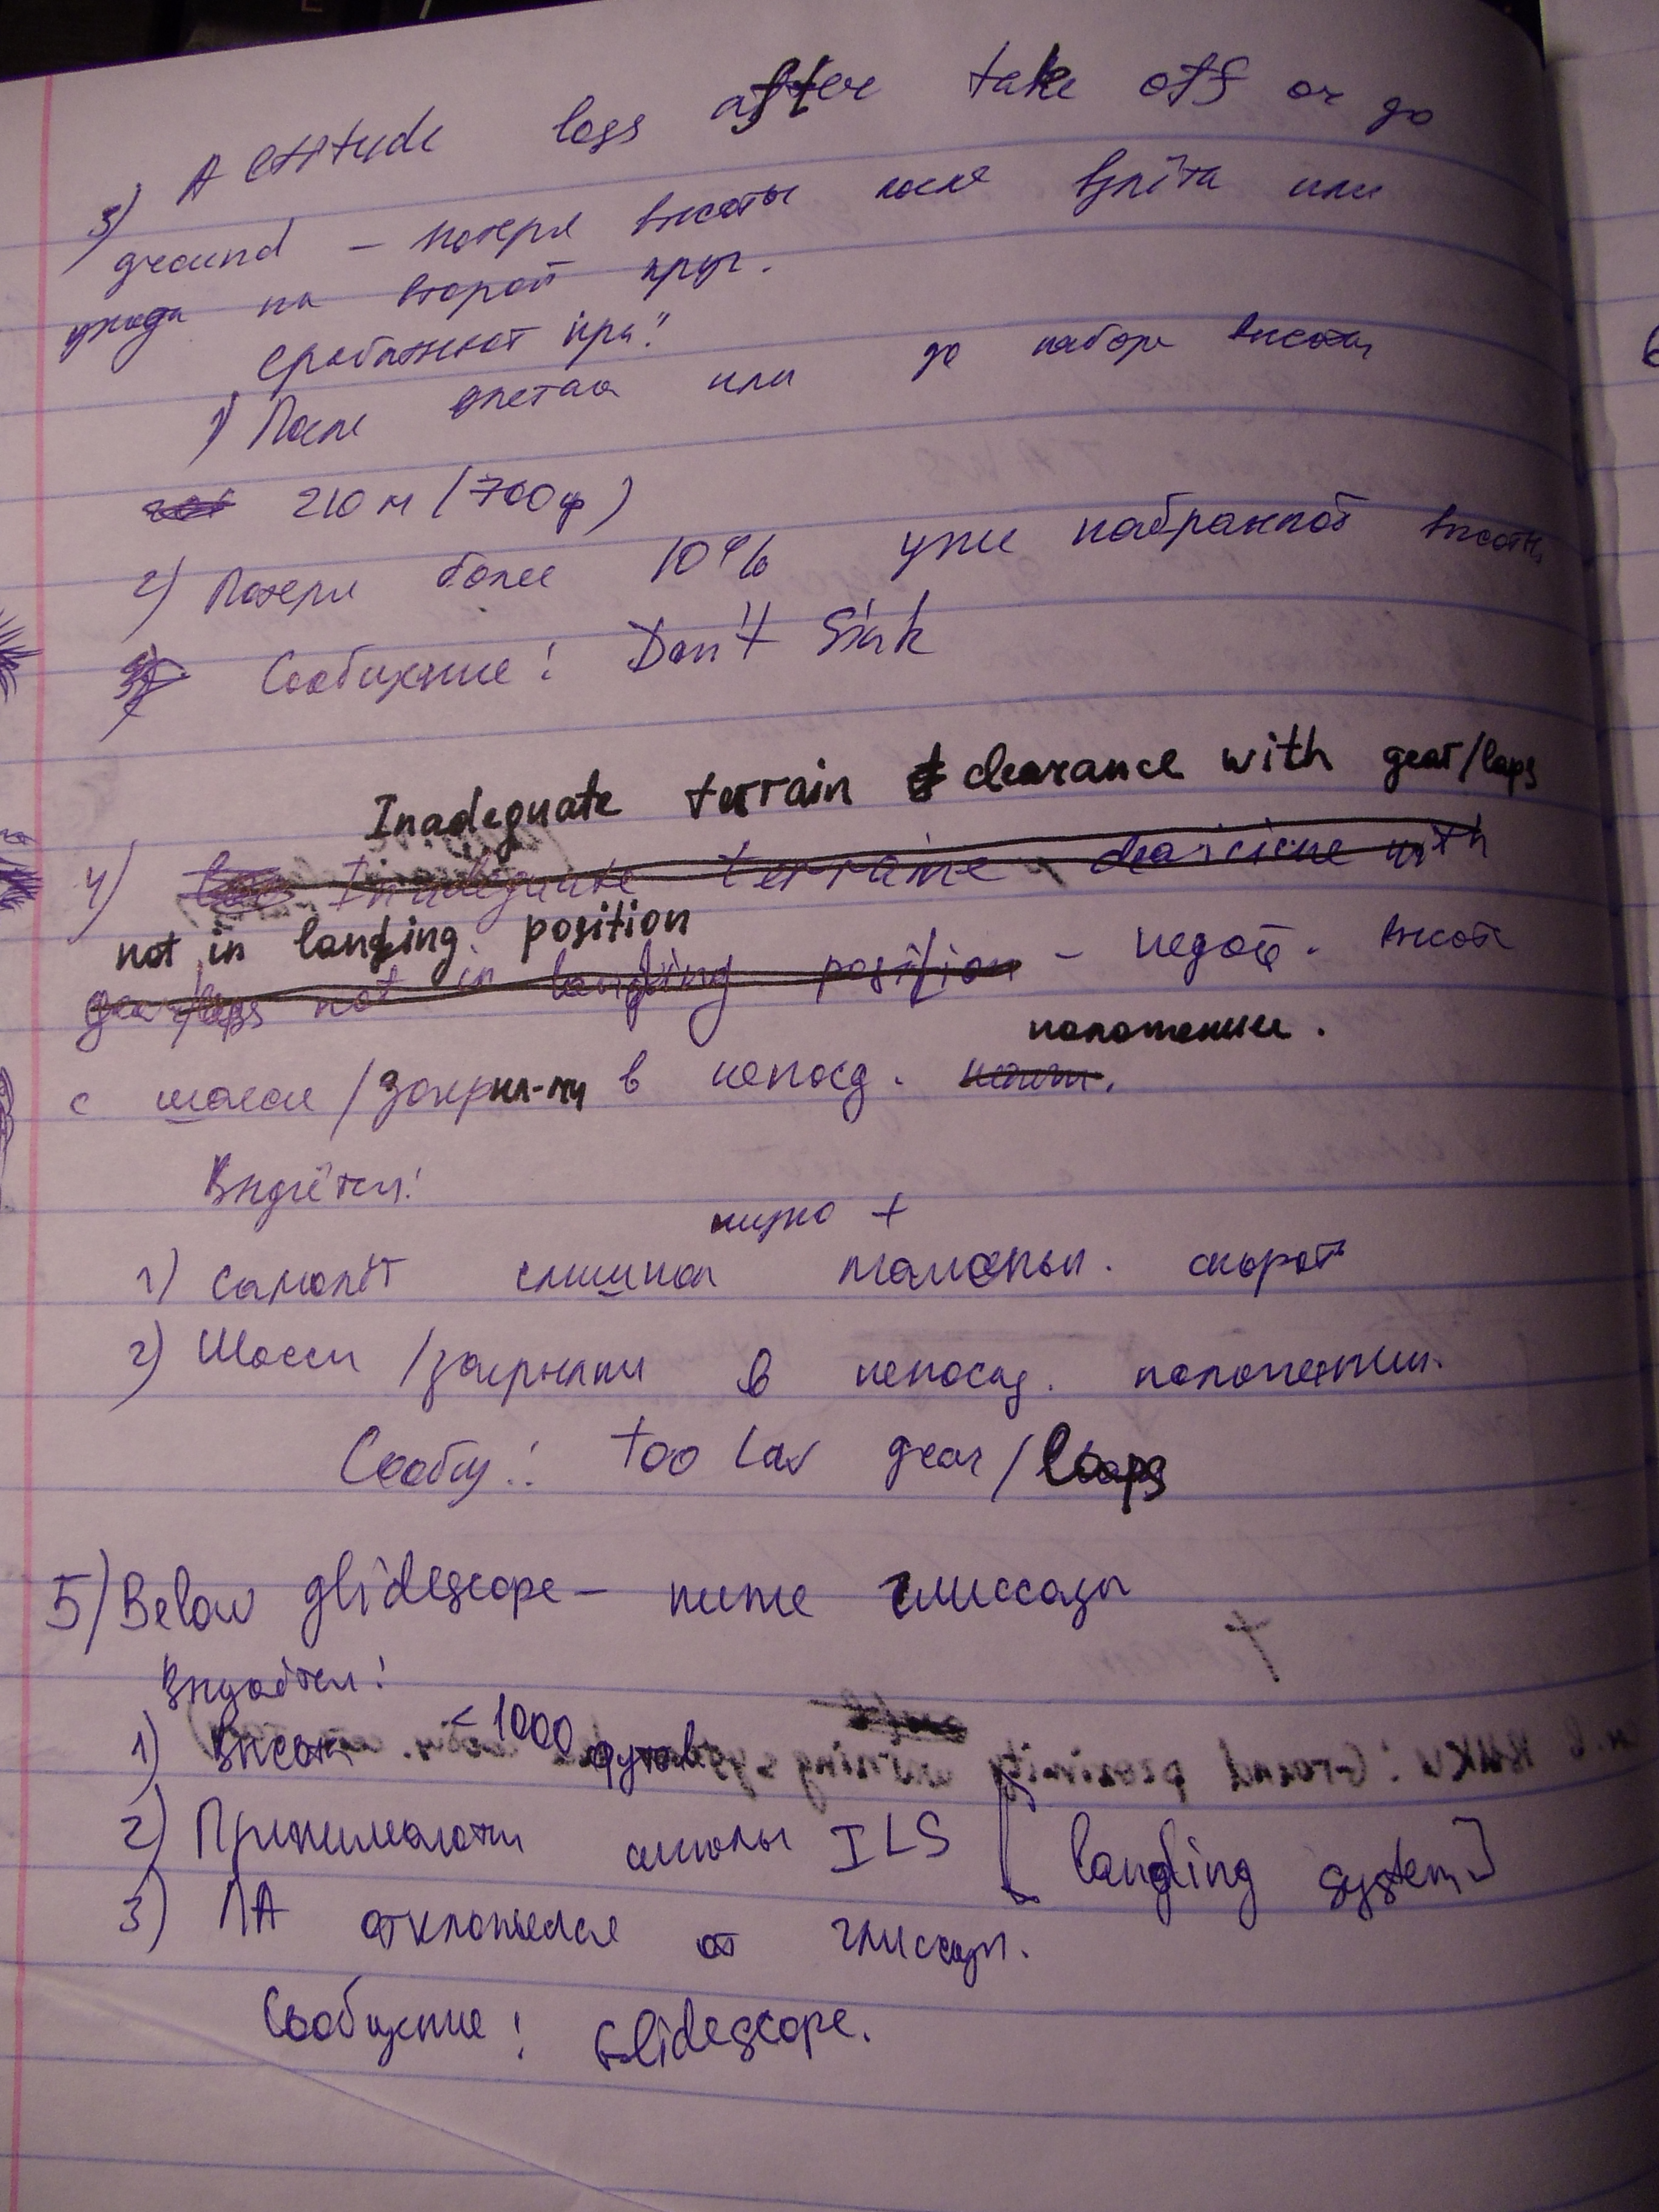 3) Altitude loss after take off or go
ground – потеря высоты после взлёта или
ухода на второй круг.
Срабатывает при:
1) После взлета или до набора высоты
210 м (700ф)
2) Потеря более 10% уже набранной высоты
Сообщение: Don't Sink
Inadequate terrain clearance with gear/laps
4) Inadequate terraine with
not in landing position
gear/laps not in landing position – недост. высота
положении.
с шасси /закрыл-ми в непосад.
Выдаётся:
низко +
1) Самолёт слишком маленьк. скорость
2) Шасси /закрылки в непосад. положении.
Сообщ.: too Low gear/laps
5) Below glidescope – ниже глиссады
Выдаётся:
1) Высота < 1000 футов
2) Принимаются сигналы ILS [landing system]
3) ЛА отклонился от глиссады.
Сообщение: Glidescope.